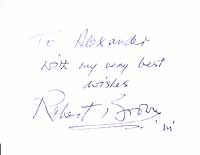 To Alexander
with my very best
wishes
Robert Brown